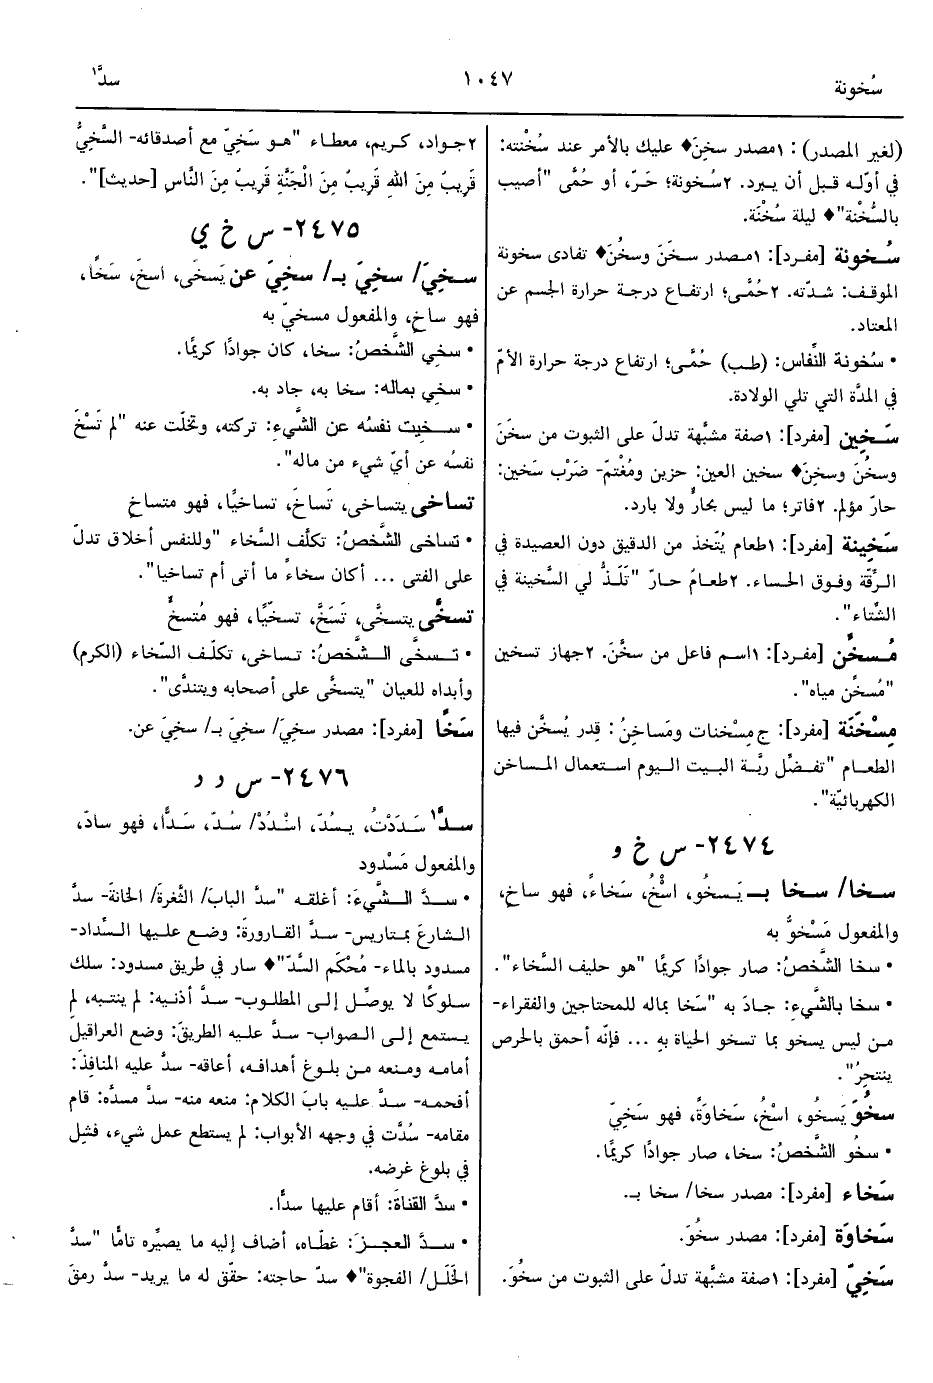 سُخونة
١٠٤٧
سدَّ١
(لغير المصدر) : ١مصدر سخِنَ♦ عليك بالأمر عند سُخْنته:
في أوّله قبل أن يبرد. ٢سُخونة؛ حَرّ، أو حُمَّى "أصيب
بالسُّخْنة"♦ ليلة سُخْنَة.
سُخونة [مفرد]: ١مصدر سخَنَ وسخُنَ♦ تفادى سخونة
الموقف: شدّته. ٢حُمَّى؛ ارتفاع درجة حرارة الجسم عن
المعتاد.
• سُخونة النِّفاس: (طب) حُمَّى؛ ارتفاع درجة حرارة الأمّ
في المدَّة التي تلي الولادة.
سَخين [مفرد]: ١صفة مشبَّهة تدلّ على الثبوت من سخَنَ
وسخُنَ وسخِنَ♦ سخين العين: حزين ومُغْتمّ- ضَرْب سَخين:
حارّ مؤلم. ٢فاتر؛ ما ليس بحارٍّ ولا بارد.
سَخينة [مفرد]: ١طعام يُتَّخذ من الدقيق دون العصيدة في
الرِّقَّة وفوق الحساء. ٢طعامٌ حارّ "تَلَذُّ لي السَّخينة في
الشِّتاء".
مُسخِّن [مفرد]: ١اسم فاعل من سخَّنَ. ٢جهاز تسخين
"مُسخِّن مياه".
مِسْخَنَة [مفرد]: ج مِسْخنات ومَساخِنُ: قِدر يُسخَّن فيها
الطعام "تفضِّل ربَّة البيت اليوم استعمال المساخن
الكهربائيّة".
٢٤٧٤- س خ و
سخا/ سخا بـ يَسخُو، اسْخُ، سَخاءً، فهو ساخٍ،
والمفعول مَسْخوٌّ به
• سخا الشَّخصُ: صار جوادًا كريمًا "هو حليف السَّخاء".
• سخا بالشَّيءِ: جادَ به "سَخا بماله للمحتاجين والفقراء-
من ليس يسخو بما تسخو الحياة بهِ ... فإنّه أحمق بالحرص
ينتحِرُ".
سخُوَ يَسخُو، اسْخُ، سَخاوَةً، فهو سَخِيّ
• سخُوَ الشَّخصُ: سخا، صار جوادًا كريمًا.
سَخاء [مفرد]: مصدر سخا/ سخا بـ.
سَخاوَة [مفرد]: مصدر سخُوَ.
سَخِيّ [مفرد]: ١صفة مشبَّهة تدلّ على الثبوت من سخُوَ.
٢جواد، كريم، معطاء "هو سَخِيّ مع أصدقائه- السَّخِيُّ
قَرِيبٌ مِنَ اللهِ قَرِيبٌ مِنَ الْجَنَّةِ قَرِيبٌ مِنَ النَّاسِ [حديث]".
٢٤٧٥- س خ ي
سخِيَ/ سخِيَ بـ/ سخِيَ عن يَسخَى، اسخَ، سَخًا،
فهو ساخٍ، والمفعول مسخيّ به
• سخِي الشَّخصُ: سخا، كان جوادًا كريمًا.
• سخِي بماله: سخا به، جاد به.
• سخيت نفسُه عن الشَّيءِ: تركته، وتخلّت عنه "لم تَسْخَ
نفسُه عن أيّ شيء من ماله".
تساخى يتساخى، تَساخَ، تساخيًا، فهو متساخٍ
• تساخى الشَّخصُ: تكلّف السَّخاء "وللنفس أخلاق تدلّ
على الفتى ... أكان سخاءً ما أتى أم تساخيا".
تسخَّى يتسخَّى، تَسَخَّ، تسخّيًا، فهو مُتسخٍّ
• تسخَّى الشَّخصُ: تساخى، تكلّف السّخاء (الكرم)
وأبداه للعيان "يتسخَّى على أصحابه ويتندَّى".
سَخًا [مفرد]: مصدر سخِيَ/ سخِيَ بـ/ سخِيَ عن.
٢٤٧٦- س د د
سدَّ١ سَدَدْتُ، يسُدّ، اسْدُدْ/ سُدّ، سَدًّا، فهو سادّ،
والمفعول مَسْدود
• سدَّ الشَّيءَ: أغلقه "سدَّ البابَ/ الثغرةَ/ الخانةَ- سدَّ
الشارعَ بمتاريس- سدَّ القارورةَ: وضع عليها السِّداد-
مسدود بالماء- مُحْكَم السَّدّ"♦ سار في طريق مسدود: سلك
سلوكًا لا يوصِّل إلى المطلوب- سدَّ أذنيه: لم ينتبه، لم
يستمع إلى الصواب- سدَّ عليه الطريقَ: وضع العراقيل
أمامه ومنعه من بلوغ أهدافه، أعاقه- سدَّ عليه المنافِذَ:
أفحمه- سدَّ عليه بابَ الكلام: منعه منه- سدَّ مسدَّه: قام
مقامه- سُدَّت في وجهه الأبواب: لم يستطع عمل شيء، فشِل
في بلوغ غرضه.
• سدَّ القناةَ: أقام عليها سدًّا.
• سدَّ العجزَ: غطّاه، أضاف إليه ما يصيِّره تامًّا "سدَّ
الخَلَل/ الفجوة"♦ سدّ حاجته: حقّق له ما يريد- سدَّ رمقَ